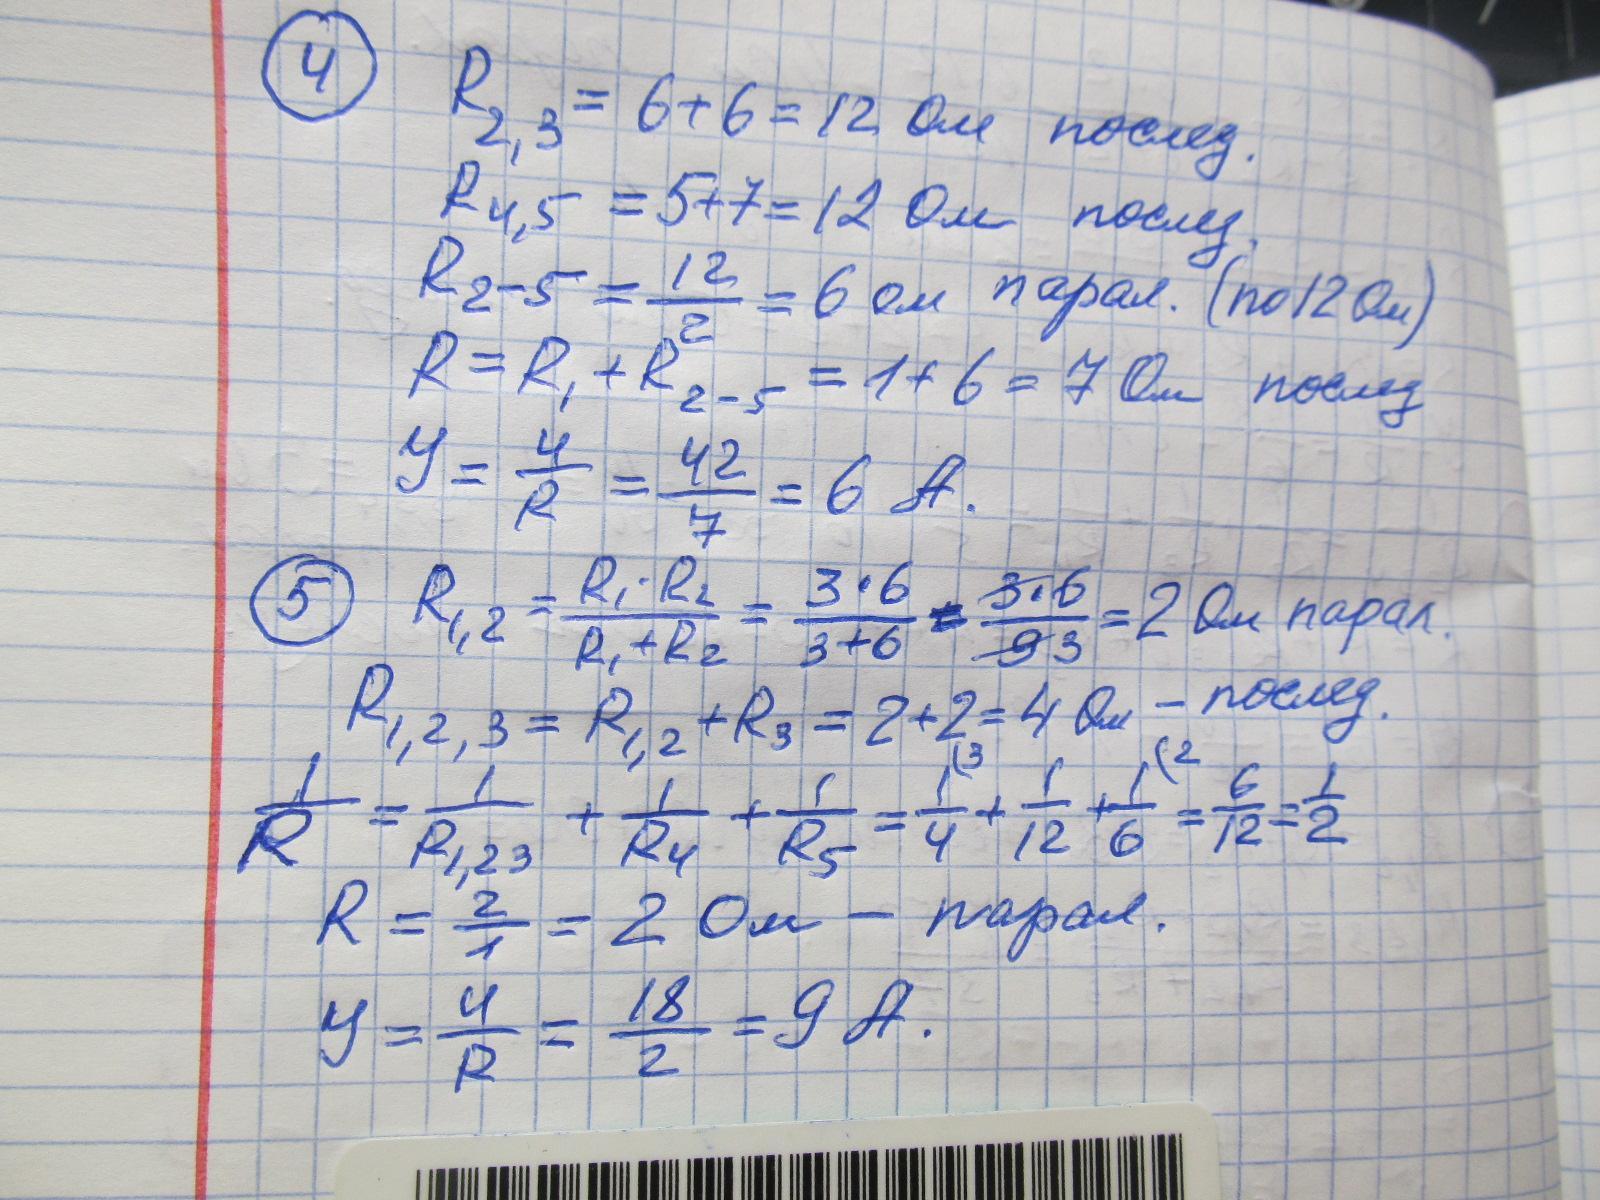 4
R2,3 = 6+6 = 12 Ом послед.
R4,5 = 5+7 = 12 Ом послед.
R2-5 = 12/2 = 6 ом парал. (по 12 Ом)
R = R1 + R2-5 = 1+6 = 7 Ом послед
У = U/R = 42/7 = 6 А.
5 R1,2 = R1·R2/R1+R2 = 3·6/3+6 = 3·6/9 3 = 2 Ом парал.
R1,2,3 = R1,2 + R3 = 2+2 = 4 Ом – послед.
1/R = 1/R1,23 + 1/R4 + 1/R5 = 1/4 (3 + 1/12 + 1/6 (2 = 6/12 = 1/2
R = 2/1 = 2 Ом – парал.
У = U/R = 18/2 = 9 А.